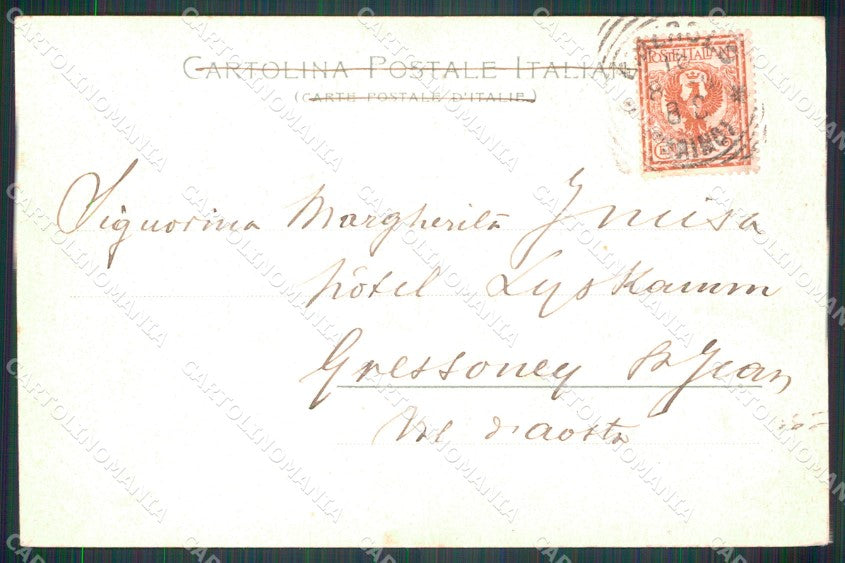 CARTOLINA POSTALE ITALIANA
(CARTE POSTALE D'ITALIE)
POSTE ITALIANE
8 2
Signorina Margherita
hôtel Lyskamm
Gressoney St Jean
Val d'aosta
CARTOLINOMANIA